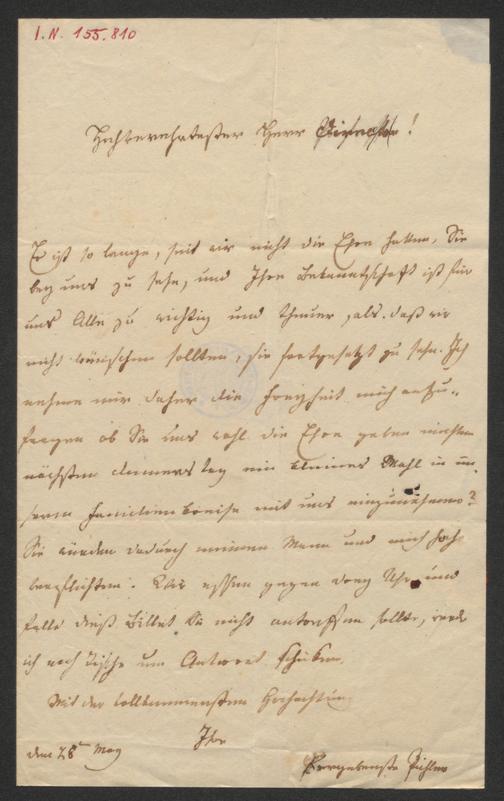 I. N. 155.810
Hochverehrtester Herr !
Es ist so lange, seit wir nicht die Ehre hatten, Sie
bey uns zu sehn, und Ihre Bekanntschaft ist für
uns Alle zu wichtig und theuer, als daß wir
nicht wünschen sollten, sie fortgesetzt zu sehn. Ich
nehme mir daher die Freyheit mich anzu-
fragen ob Sie uns wohl die Ehre geben möchten
nächsten Donnerstag ein kleines Mahl in un-
serm Familienkreise mit uns einzunehmen?
Sie würden dadurch meinen Mann und mich sehr
verpflichten. Wir essen gegen drey Uhr, und
falls dieß Billet Sie nicht antreffen sollte, werde
ich nach Tische um Antwort schicken.
Mit der vollkommensten Hochachtung
Ihre
den 28n May
Ergebenste Pichler